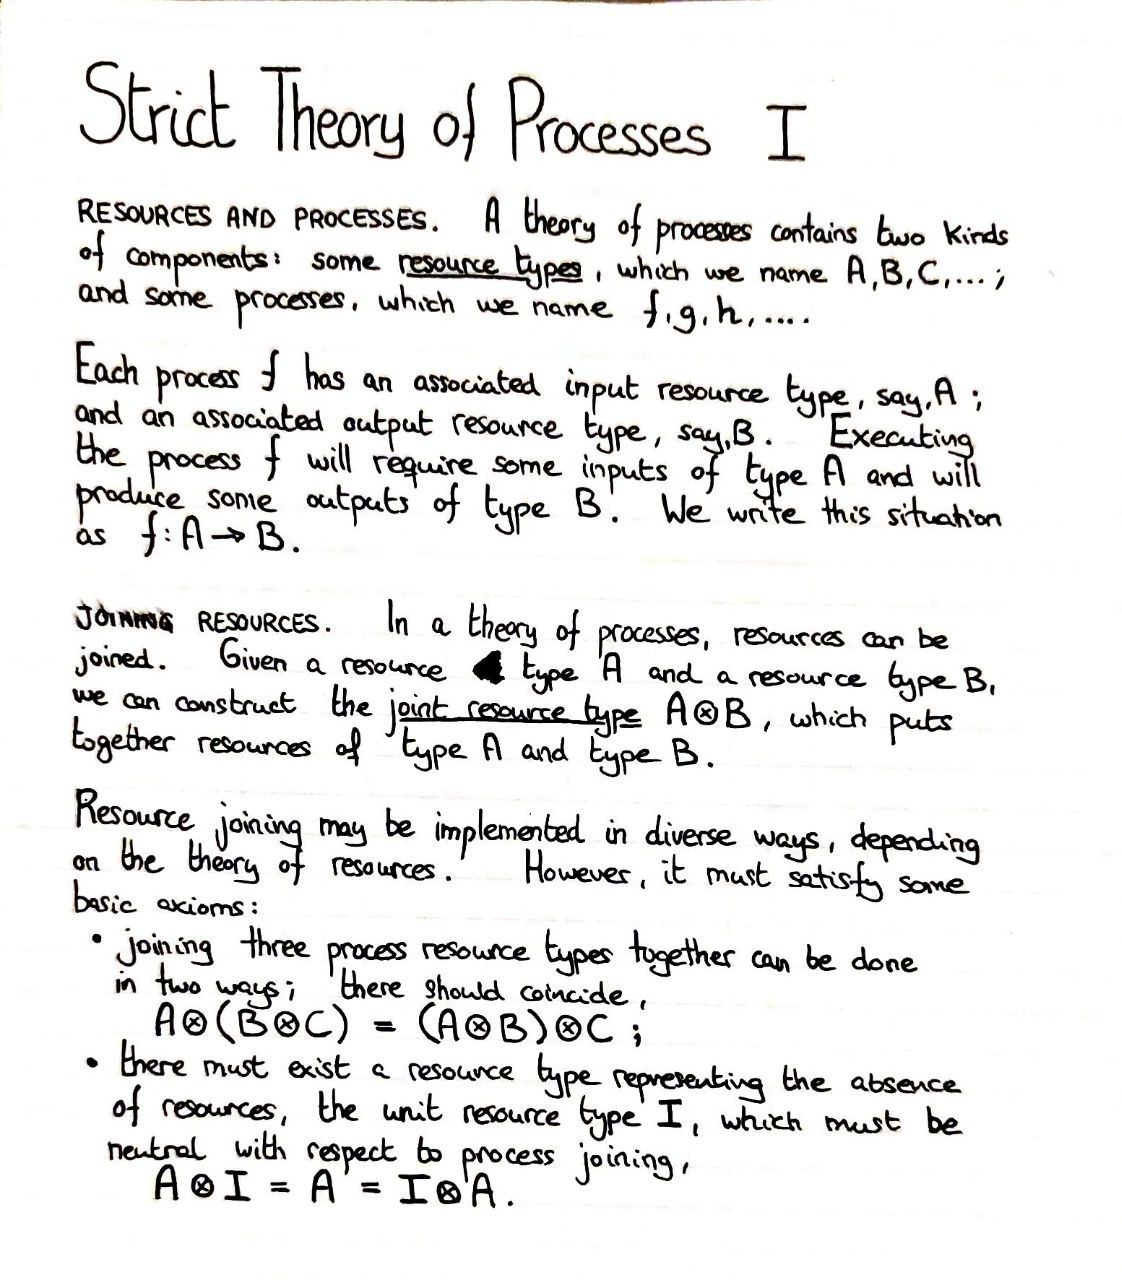 Strict Theory of Processes I
RESOURCES AND PROCESSES. A theory of processes contains two kinds
of components: some resource types, which we name A,B,C,...;
and some processes, which we name f,g,h,....
Each process f has an associated input resource type, say, A;
and an associated output resource type, say, B. Executing
the process f will require some inputs of type A and will
produce some outputs of type B. We write this situation
as f: A → B.
JOINING RESOURCES. In a theory of processes, resources can be
joined. Given a resource type A and a resource type B,
we can construct the joint resource type A⊗B, which puts
together resources of type A and type B.
Resource joining may be implemented in diverse ways, depending
on the theory of resources. However, it must satisfy some
basic axioms:
• joining three process resource types together can be done
in two ways; there should coincide,
A⊗(B⊗C) = (A⊗B)⊗C ;
• there must exist a resource type representing the absence
of resources, the unit resource type I, which must be
neutral with respect to process joining,
A⊗I = A = I⊗A.